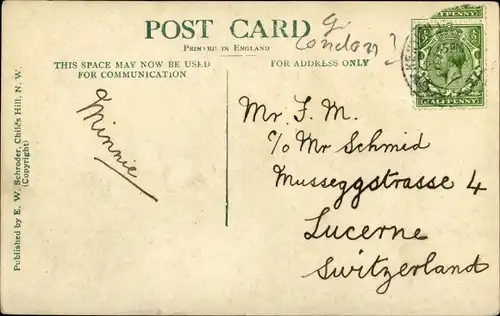 POST CARD
PRINTED IN ENGLAND
THIS SPACE MAY NOW BE USED
FOR COMMUNICATION
FOR ADDRESS ONLY
London?
HALFPENNY
HALFPENNY
Minnie
Mr F. M.
c/o Mr Schmid
Museggstrasse 4
Lucerne
Switzerland
Published by E. W. Schroder, Child's Hill, N. W.
(Copyright)